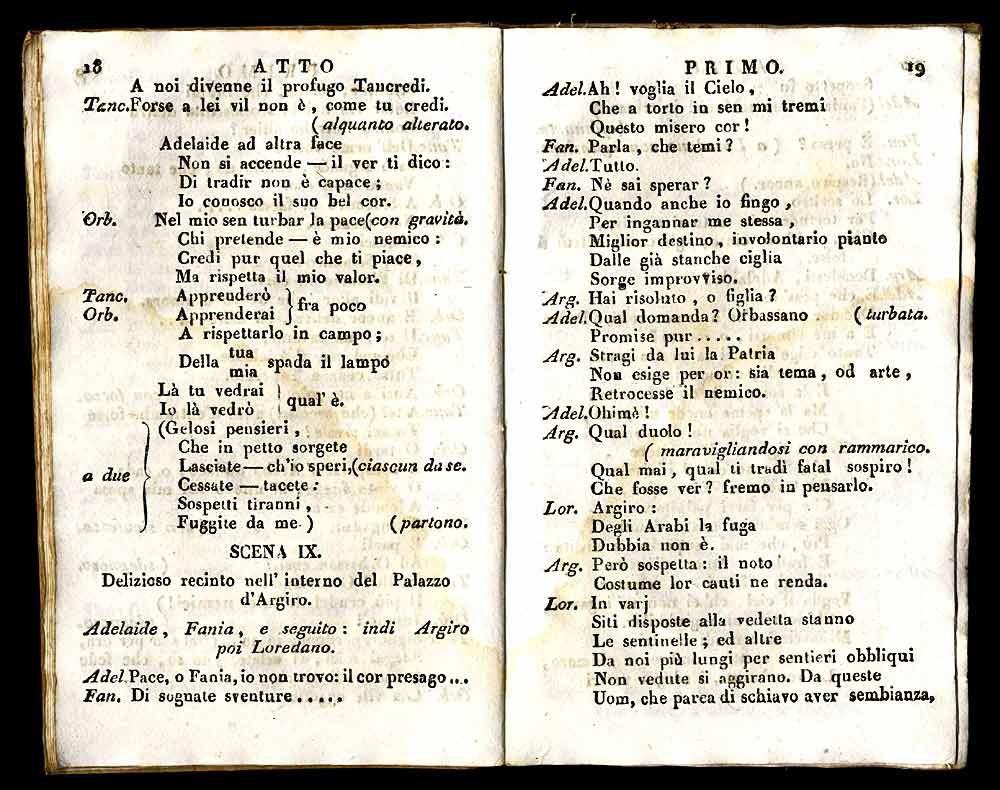 18 ATTO
A noi divenne il profugo Tancredi.
Tanc. Forse a lei vil non è, come tu credi.
(alquanto alterato.
Adelaide ad altra face
Non si accende — il ver ti dico:
Di tradir non è capace;
Io conosco il suo bel cor.
Orb. Nel mio sen turbar la pace (con gravità.
Chi pretende — è mio nemico:
Credi pur quel che ti piace,
Ma rispetta il mio valor.
Tanc. Apprenderò } fra poco
Orb. Apprenderai
A rispettarlo in campo;
Della tua spada il lampo
mia
Là tu vedrai } qual' è.
Io là vedrò
(Gelosi pensieri,
Che in petto sorgete
Lasciate — ch'io speri, (ciascun da se.
a due Cessate — tacete:
Sospetti tiranni,
Fuggite da me.) (partono.
SCENA IX.
Delizioso recinto nell' interno del Palazzo
d'Argiro.
Adelaide, Fania, e seguito: indi Argiro
poi Loredano.
Adel. Pace, o Fania, io non trovo: il cor presago ...
Fan. Di sognate sventure.....
PRIMO. 19
Adel. Ah! voglia il Cielo,
Che a torto in sen mi tremi
Questo misero cor!
Fan. Parla, che temi?
Adel. Tutto.
Fan. Nè sai sperar?
Adel. Quando anche io fingo,
Per ingannar me stessa,
Miglior destino, involontario pianto
Dalle già stanche ciglia
Sorge improvviso.
Arg. Hai risoluto, o figlia?
Adel. Qual domanda? Orbassano (turbata.
Promise pur.....
Arg. Stragi da lui la Patria
Non esige per or: sia tema, od arte,
Retrocesse il nemico.
Adel. Ohimè!
Arg. Qual duolo!
(maravigliandosi con rammarico.
Qual mai, qual ti tradì fatal sospiro!
Che fosse ver? fremo in pensarlo.
Lor. Argiro:
Degli Arabi la fuga
Dubbia non è.
Arg. Però sospetta: il noto
Costume lor cauti ne renda.
Lor. In varj
Siti disposte alla vedetta stanno
Le sentinelle; ed altre
Da noi più lungi per sentieri obbliqui
Non vedute si aggirano. Da queste
Uom, che parea di schiavo aver sembianza,